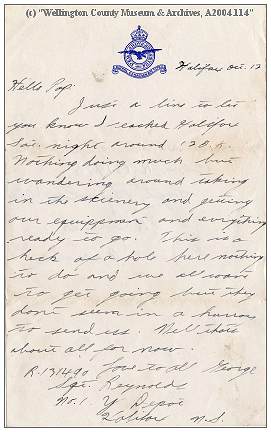 (c) "Wellington County Museum & Archives, A2004.114"
Halifax Oct. 12
Hello Pop:
Just a line to let
you know I reached Halifax
Sat. night around 12
Nothing doing much but
wandering around taking
in the scienery and getting
our equippment and everything
ready to go. This is a
heck of a hole here nothing
to do and we all want
to get going but they
don't seem in a hurry
to send us. Well thats
about all for now.
Love to all George
R.131490
Sgt. Reynolds
No. 1. Y Depot
Halifax N.S.